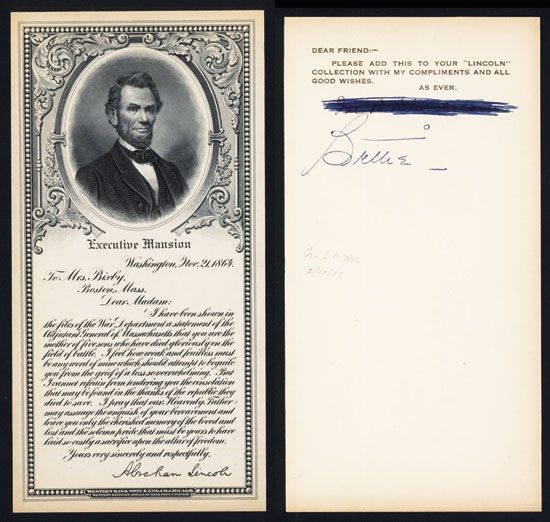 Executive Mansion
Washington, Nov. 21, 1864.
To Mrs. Bixby,
Boston, Mass.
Dear Madam:
I have been shown in
the files of the War Department a statement of the
Adjutant General of Massachusetts that you are the
mother of five sons who have died gloriously on the
field of battle. I feel how weak and fruitless must
be any word of mine which should attempt to beguile
you from the grief of a loss so overwhelming. But
I cannot refrain from tendering you the consolation
that may be found in the thanks of the republic they
died to save. I pray that our Heavenly Father
may assuage the anguish of your bereavement and
leave you only the cherished memory of the loved and
lost and the solemn pride that must be yours to have
laid so costly a sacrifice upon the altar of freedom.
Yours very sincerely and respectfully,
Abraham Lincoln
WESTERN BANK NOTE & ENG. CO. CHICAGO.
WESTERN DIVISION AMERICAN BANK NOTE COMPANY
DEAR FRIEND:-
PLEASE ADD THIS TO YOUR "LINCOLN"
COLLECTION WITH MY COMPLIMENTS AND ALL
GOOD WISHES.
AS EVER.
Billie